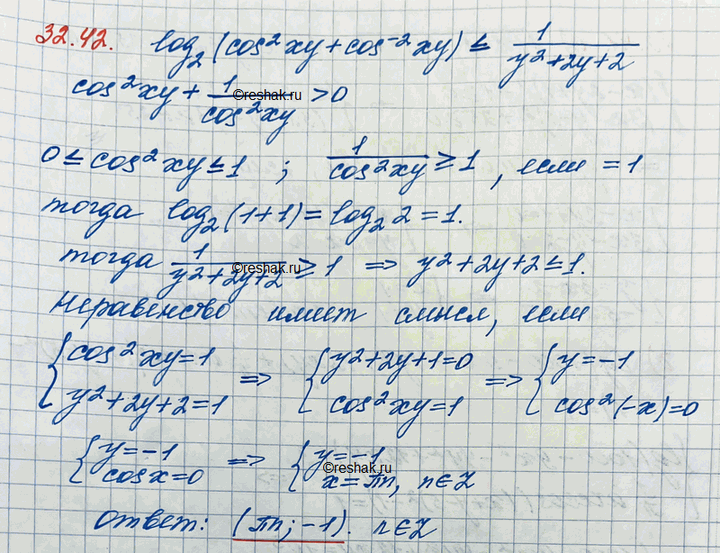 32.42. log₂(cos²xy + cos⁻²xy) ≤ 1/(y²+2y+2)
cos²xy + 1/cos²xy > 0
©reshak.ru
0 ≤ cos²xy ≤ 1 ; 1/cos²xy ≥ 1, если = 1
тогда log₂(1+1) = log₂2 = 1.
тогда 1/(y²+2y+2) ≥ 1 ⇒ y²+2y+2 ≤ 1.
©reshak.ru
Неравенство имеет смысл, если
{cos²xy=1 y²+2y+2=1 ⇒ {y²+2y+1=0 cos²xy=1 ⇒ {y=-1 cos²(-x)=0
{y=-1 cosx=0 ⇒ {y=-1 x=πn, n∈Z
©reshak.ru
Ответ: (πn; -1). n∈Z